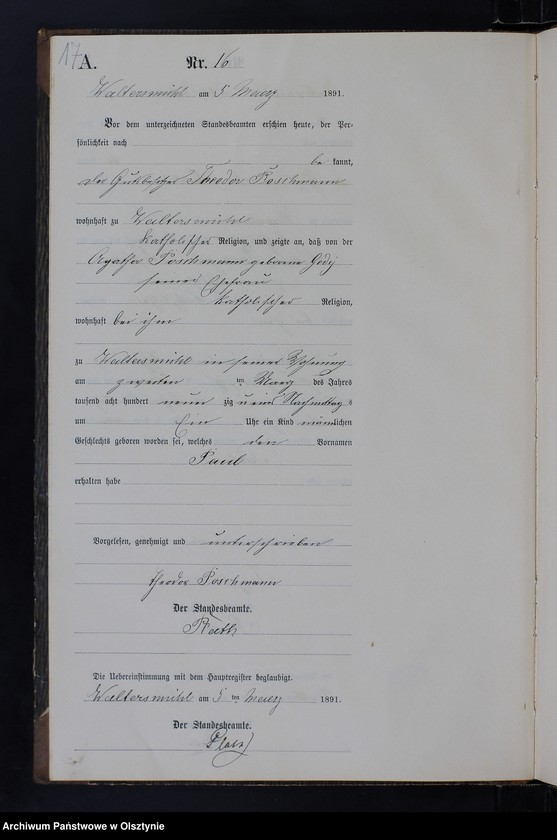 17
A. Nr. 16
Waltersmühl am 5 Maerz 1891.
Vor dem unterzeichneten Standesbeamten erschien heute, der Per-
sönlichkeit nach
be kannt,
der Gutsbesitzer Theodor Poschmann
wohnhaft zu Waltersmühl
katholischer Religion, und zeigte an, daß von der
Agatha Poschmann geborene
seiner Ehefrau
katholischer Religion,
wohnhaft bei ihm
zu Waltersmühl in seiner Wohnung
am zweiten ten Maerz des Jahres
tausend acht hundert neun zig und eins Nachmittag s
um Ein Uhr ein Kind männlichen
Geschlechts geboren worden sei, welches den Vornamen
Paul
erhalten habe
Vorgelesen, genehmigt und unterschrieben
Theodor Poschmann
Der Standesbeamte.
Vorstehende Uebereinstimmung
Die Uebereinstimmung mit dem Hauptregister beglaubigt.
Waltersmühl am 5 ten Maerz 1891.
Der Standesbeamte.
Archiwum Państwowe w Olsztynie